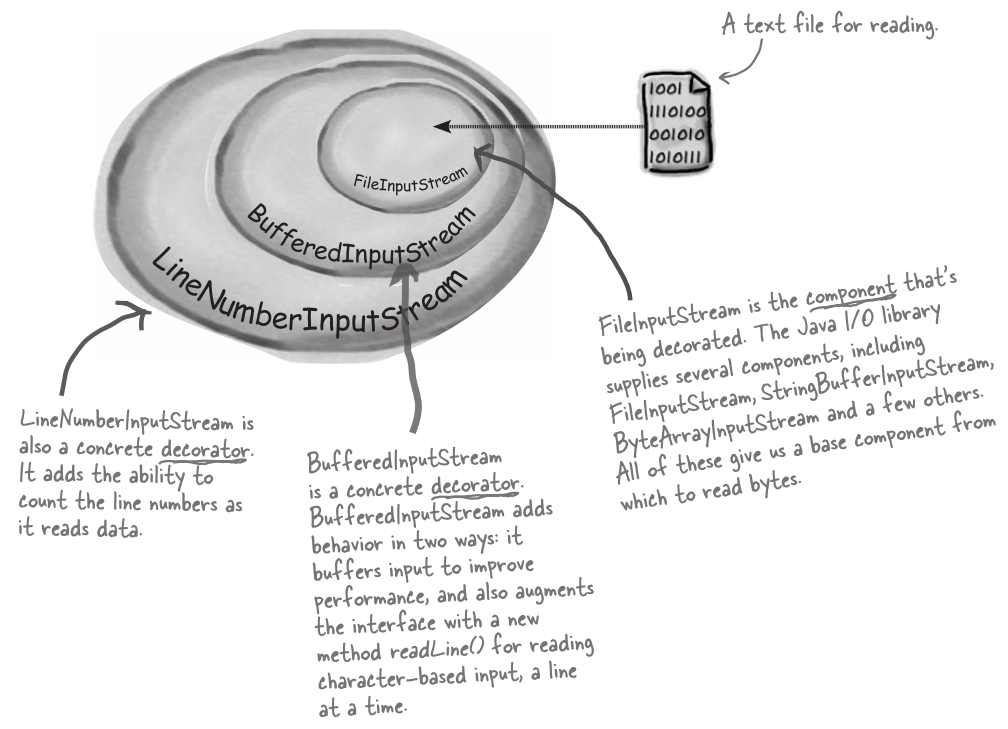 A text file for reading.
1001
1110100
001010
1010111
FileInputStream
BufferedInputStream
LineNumberInputStream
FileInputStream is the component that's
being decorated. The Java I/O library
supplies several components, including
FileInputStream, StringBufferInputStream,
ByteArrayInputStream and a few others.
All of these give us a base component from
which to read bytes.
LineNumberInputStream is
also a concrete decorator.
It adds the ability to
count the line numbers as
it reads data.
BufferedInputStream
is a concrete decorator.
BufferedInputStream adds
behavior in two ways: it
buffers input to improve
performance, and also augments
the interface with a new
method readLine() for reading
character-based input, a line
at a time.